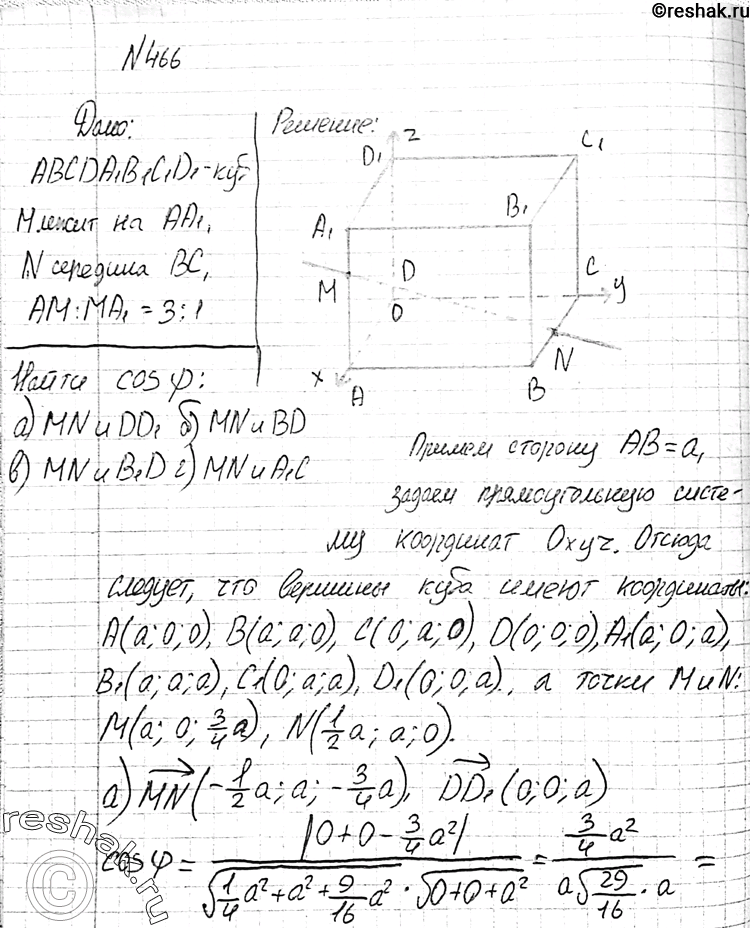 ©reshak.ru
N466
Дано:
ABCDA₁B₁C₁D₁-куб
M лежит на AA₁,
N середина BC,
AM:MA₁ = 3:1
Найти cos φ:
а) MN и DD₁ б) MN и BD
в) MN и B₁D г) MN и A₁C
Решение:
z
D₁
C₁
A₁
B₁
M
D
C
y
O
N
x
A
B
Примем сторону AB=a,
задаем прямоугольную систе-
му координат Oxyz. Отсюда
следует, что вершины куба имеют координаты:
A(a; 0; 0), B(a; a; 0), C(0; a; 0), D(0; 0; 0), A₁(a; 0; a),
B₁(a; a; a), C₁(0; a; a), D₁(0; 0; a), а точки M и N:
M(a; 0; 3/4 a), N(1/2 a; a; 0).
а) MN(-1/2 a; a; -3/4 a), DD₁(0; 0; a)
cos φ = |0+0-3/4 a²| / (√(1/4 a²+a²+9/16 a²) · √(0+0+a²)) = 3/4 a² / (a√(29/16) · a) =
©reshak.ru